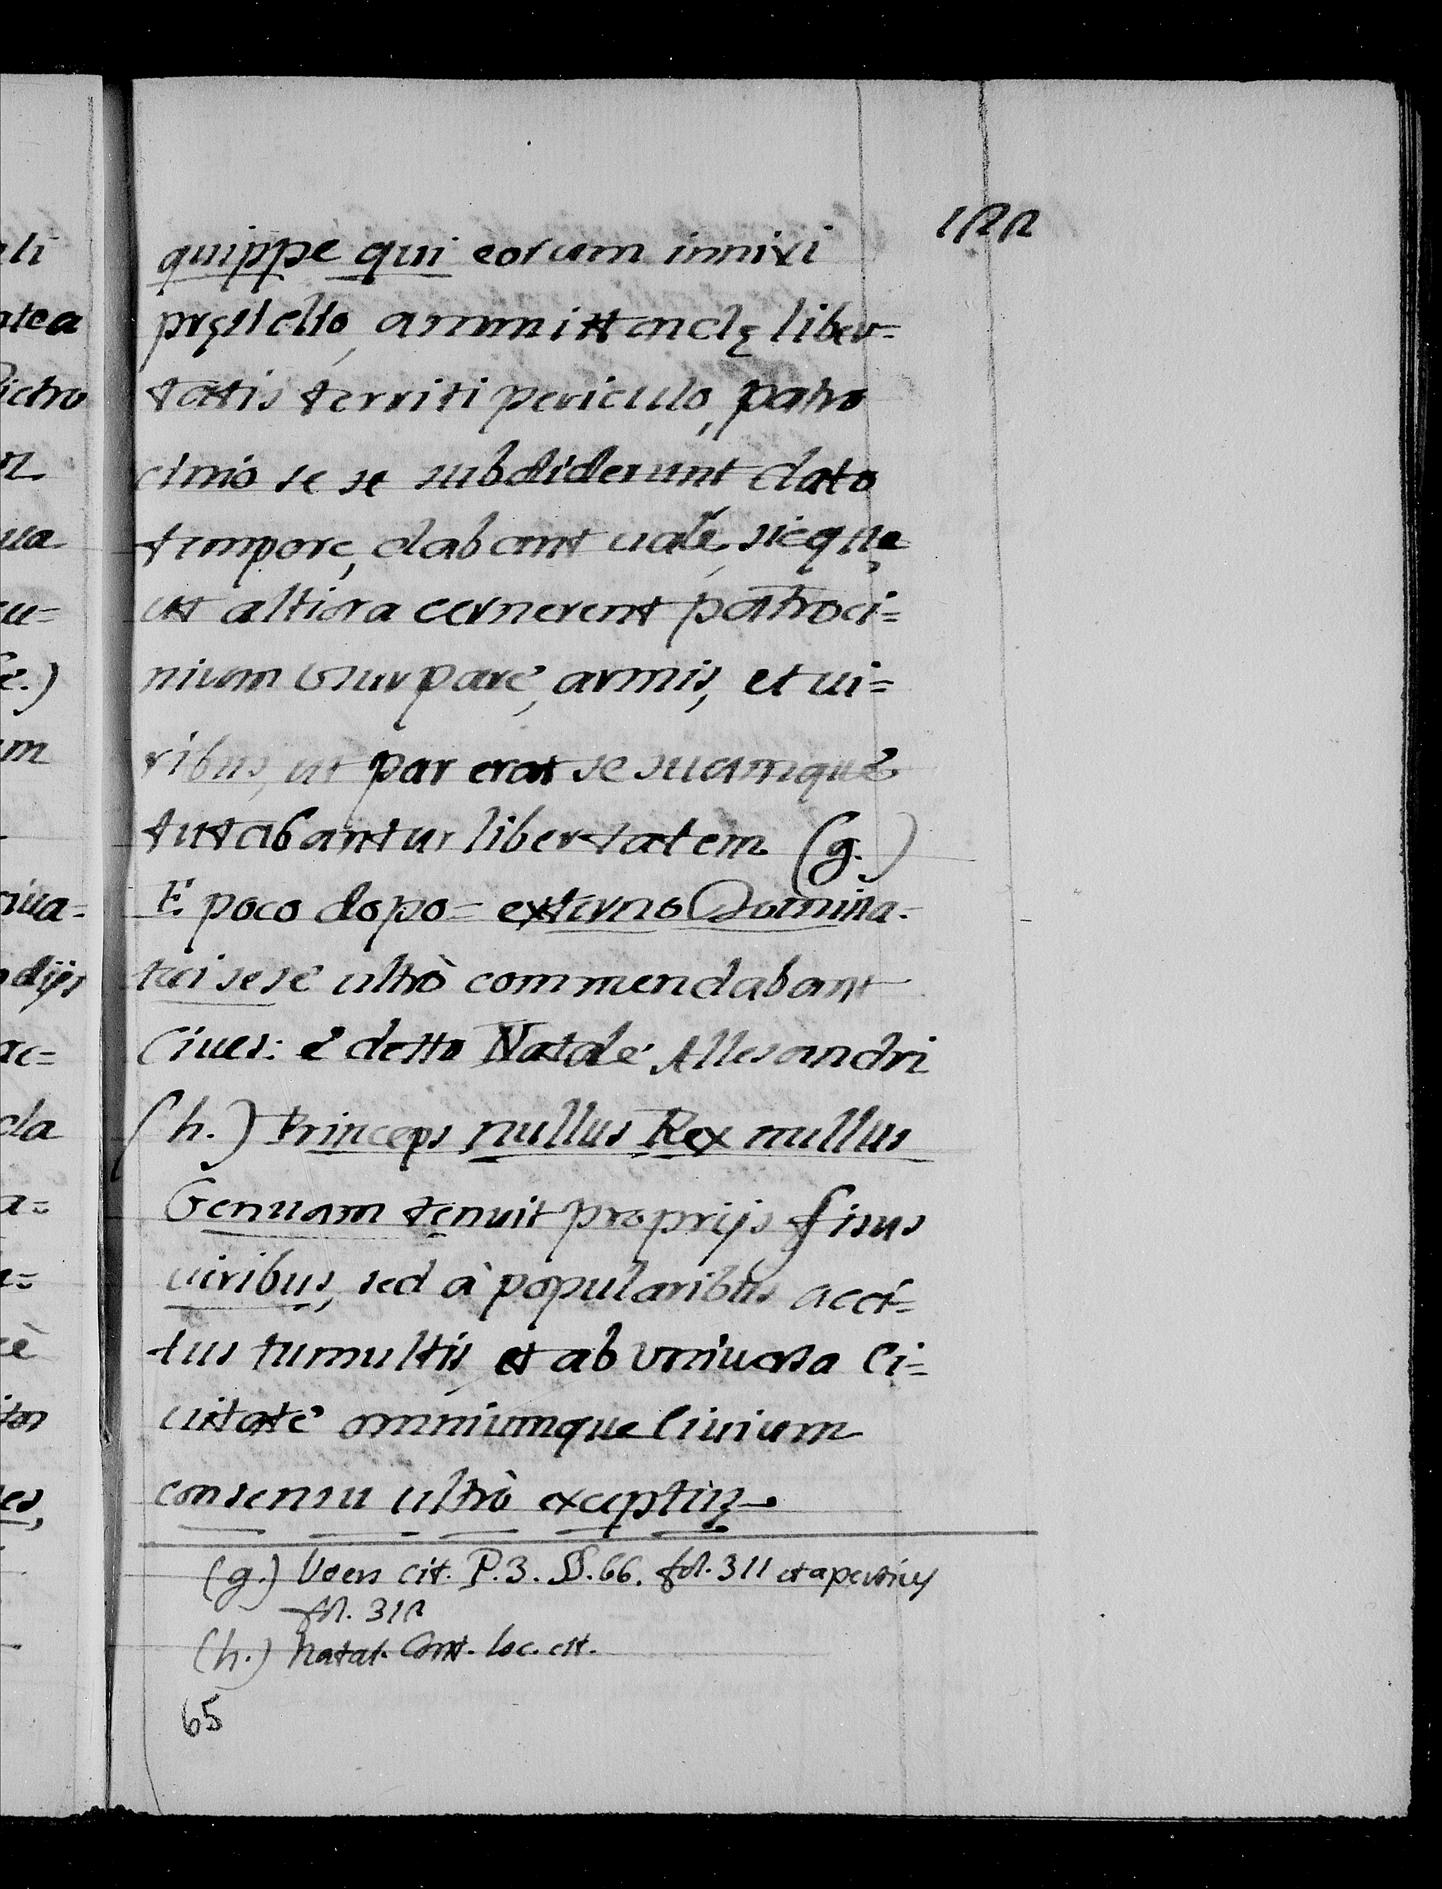 122
quippe qui eorum innixi
pręsidio, ammittendę liber=
tatis territi periculo, patro
cinio se se subdiderunt dato
tempore, dabant uale, sicque
ut altiora cernerent patroci=
nium usurpare, armis, et ui=
ribus, ut par erat se suamque
tutabantur libertatem (g.)
E poco dopo= externo Domina-
tui sese ultrò commendabant
Ciues: e detto Natale Allesandri
(h.) Princeps nullus Rex nullus
Genuam tenuit proprijs fisus
uiribus, sed à popularibus acci=
tus tumultis et ab uniuersa Ci=
uitate omniumque Ciuium
consensu ultrò exceptus.
(g.) cit. P. 3. §. 66. fol. 311 et
fol. 312
(h.) Natal. Com. loc. cit.
65
ntea
ua
cu=
e.)
um
ciua=
ndijs
ac=
da
a=